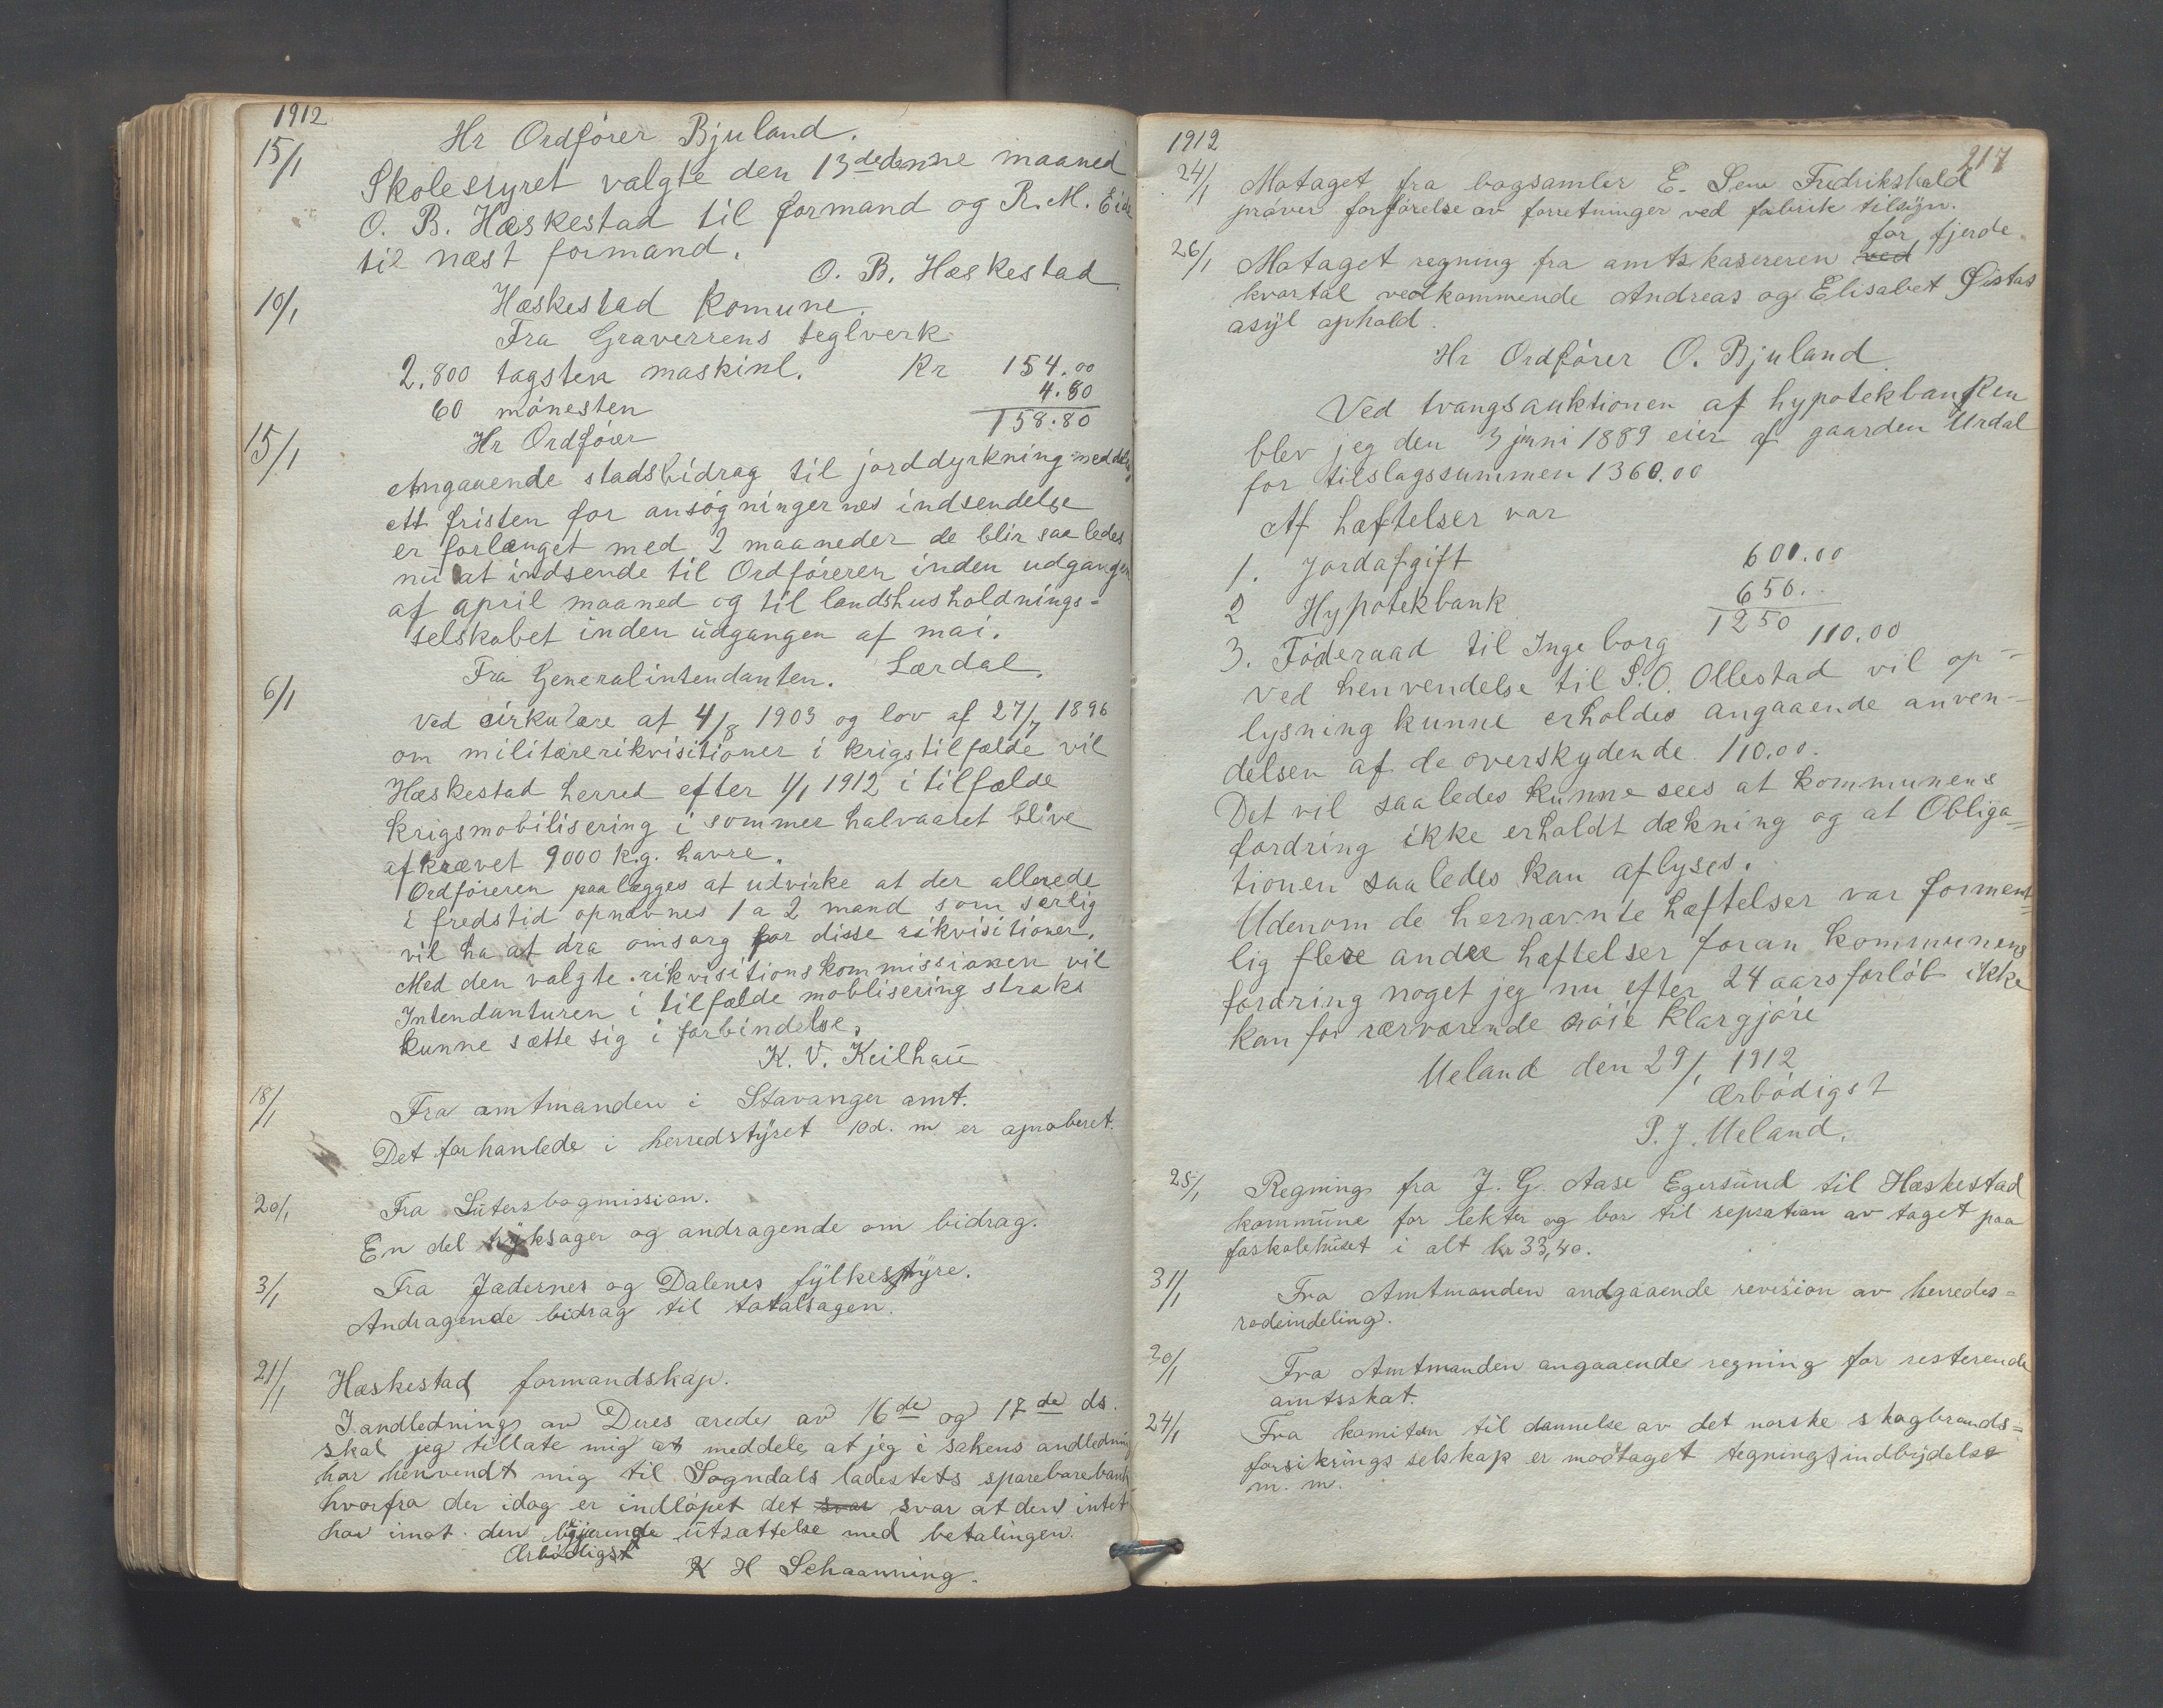 1912
15/1 Hr Ordfører Bjuland.
Skolestyret valgte den 13de denne maaned
O. B. Hæskestad til formand og R. M. Eide
til næst formand.
O. B. Hæskestad
10/1 Hæskestad Komune.
Fra Graverens teglverk
2.800 tagsten maskinl. Kr 154.00
60 mønesten 4.80
158.80
15/1 Hr Ordfører
Angaaende stadsbidrag til jorddyrkning meddeles
at fristen for ansøgningernes indsendelse
er forlænget med 2 maaneder de blir saaledes
nu at indsende til Ordføreren inden udgangen
af april maaned og til landshusholdnings=
selskabet inden udgangen af mai.
Lærdal.
6/1 Fra Generalintendanten.
Ved cirkulære af 4/8 1903 og lov af 27/7 1896
om militære rikvisitioner i krigstilfælde vil
Hæskestad herred efter 1/1 1912 i tilfælde
krigsmobilisering i sommer halvaaret blive
afkrævet 9000 k.g. havre.
Ordføreren paalægges at udvirke at der allerede
i fredstid opnævnes 1 a 2 mand som særlig
vil ha at dra omsorg for disse rikvisitioner.
Med den valgte rikvisitionskommissionen vil
Intendanturen i tilfælde moblisering straks
kunne sætte sig i forbindelse.
K. V. Keilhau
18/1 Fra amtmanden i Stavanger amt.
Det forhanlede i herredstyret 10 d. m er aproberet.
20/1 Fra Lutersbogmission.
En del tryksager og andragende om bidrag.
3/1 Fra Jædernes og Dalenes fylkesstyre.
Andragende bidrag til totalsagen.
21/1 Hæskestad formandskap.
I andledning av Deres ærede av 16de og 17de ds.
skal jeg tillate mig at meddele at jeg i sakens andledning
har henvendt mig til Sogndals ladesteds sparebarebank
hvorfra der idag er indløpet det svar svar at den intet
har imot den begjærende utsættelse med betalingen.
Ærbødigst
K H Schaanning.
1912
217
24/1 Motaget fra bogsamler E. Sem Fredrikshald
prøver forførelse av forretninger ved fabrik tilsyn.
for fjerde
26/1 Motaget regning fra amtskasereren ved
kvartal vedkommende Andreas og Elisabet Østas
asyl ophold.
Hr Ordfører O. Bjuland
Ved tvangsauktionen af hypotekbanken
blev jeg den 3 juni 1889 eier af gaarden Urdal
for tilslagssummen 1360.00
Af hæftelser var
1. Jordafgift 600.00
2 Hypotekbank 650..
1250
3. Føderaad til Ingeborg 110.00
Ved henvendelse til S. O. Ollestad vil op-
lysning kunne erholdes angaaende anven-
delsen af de overskydende 110.00.
Det vil saaledes kunne sees at kommunens
fordring ikke erholdt dækning og at Obliga=
tionen saaledes kan aflyses.
Udenom de hernævnte hæftelser var forment=
lig flere andre hæftelser foran kommunens
fordring noget jeg nu efter 24 aars forløb ikke
kan for nærværende nøie klargjøre
Ueland den 29/1 1912
Ærbødigst
P. J. Ueland.
25/1 Regning fra J. G. Aase Egersund til Hæskestad
kommune for lekter og bor til repration av taget paa
faskolehuset i alt kr 33,40.
31/1 Fra Amtmanden andgaaende revision av herredes=
rodeindeling.
30/1 Fra Amtmanden angaaende regning for resterende
amtsskat.
24/1 Fra komiten til dannelse av det norske skogbrands=
forsikrings selskap er modtaget tegningsindbydelse
m. m.